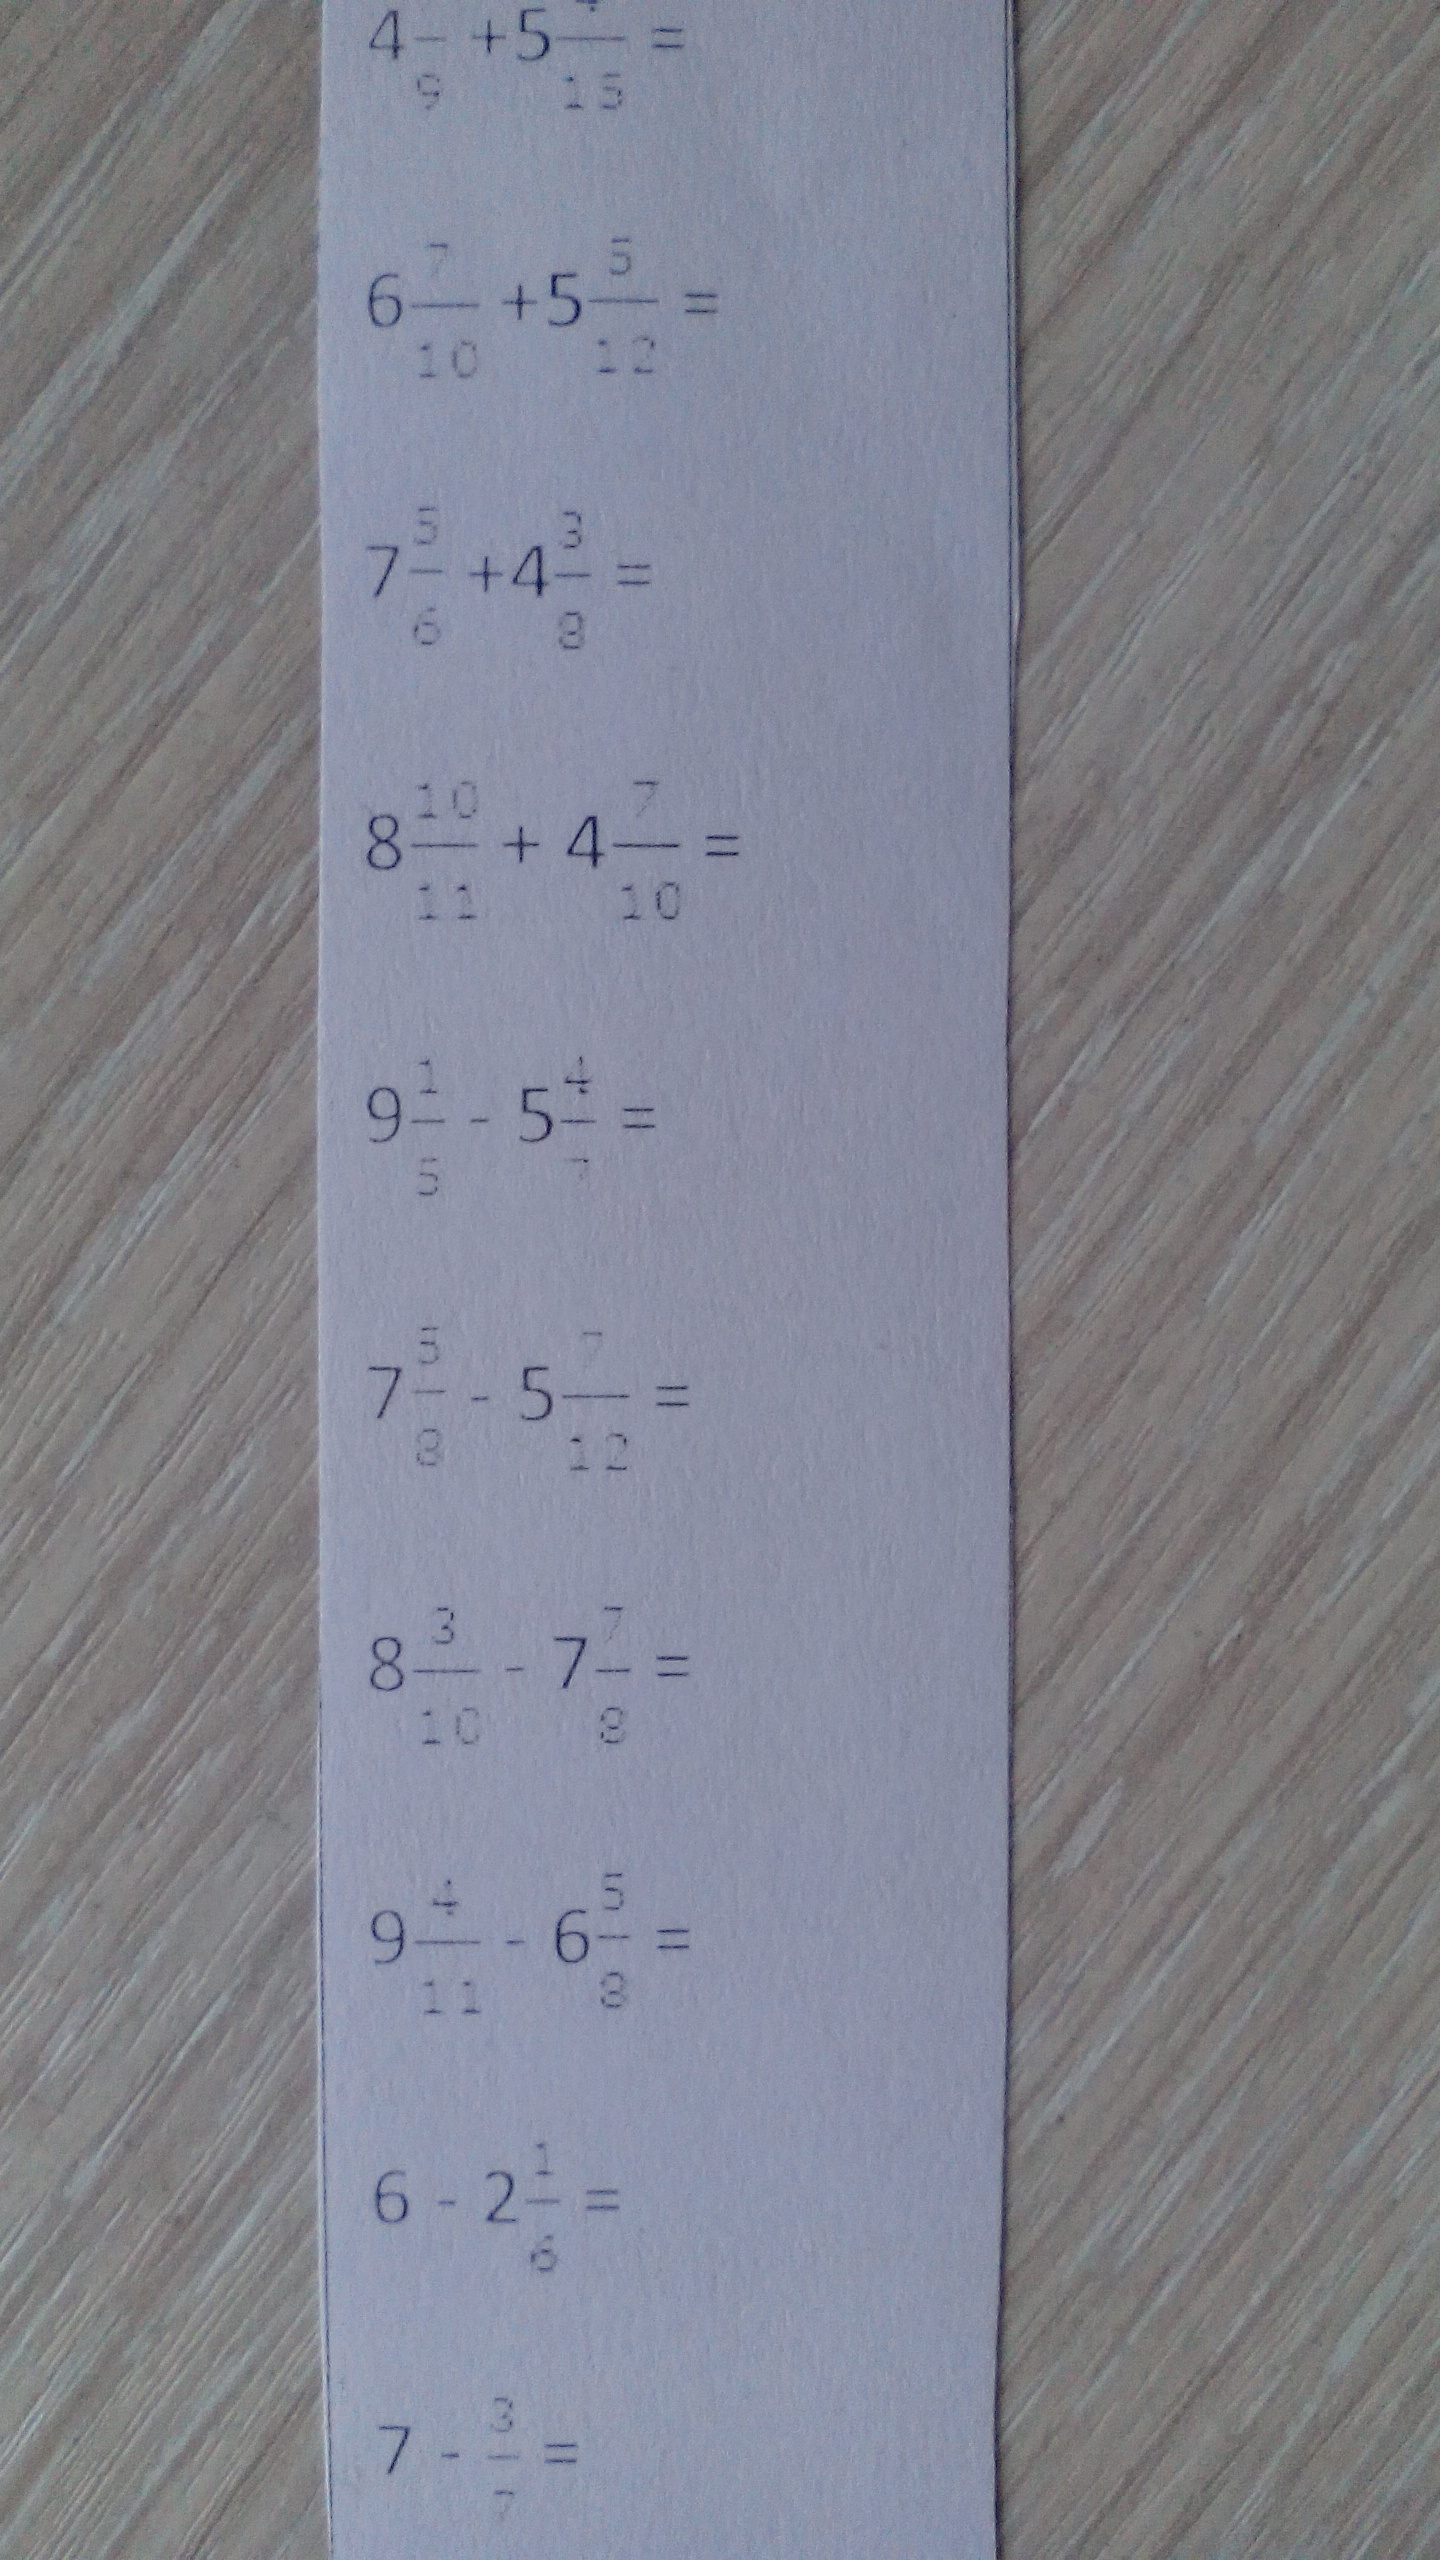 4 /9 + 5 /15 =
6 7/10 + 5 5/12 =
7 5/6 + 4 3/8 =
8 10/11 + 4 7/10 =
9 1/5 - 5 4/7 =
7 5/8 - 5 7/12 =
8 3/10 - 7 7/8 =
9 4/11 - 6 5/8 =
6 - 2 1/6 =
7 - 3/7 =